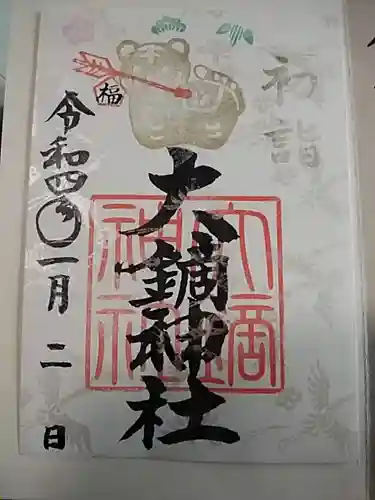 初詣
大鏑神社
大鏑
神社
福
令和四年一月二日